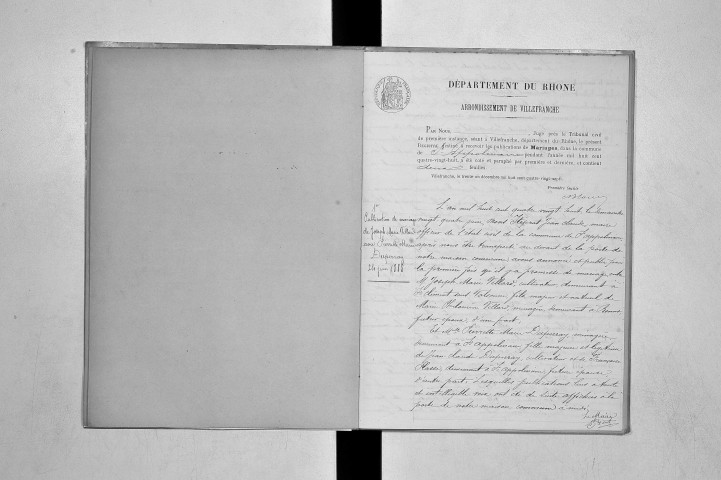 DÉPARTEMENT DU RHÔNE
ARRONDISSEMENT DE VILLEFRANCHE
PAR NOUS Juge près le Tribunal civil
de première instance, séant à Villefranche, département du Rhône, le présent
Registre, destiné à recevoir les publications de Mariages, dans la commune
de St Appolinaire pendant l'année mil huit cent
quatre-vingt-huit, a été coté et paraphé par première et dernière, et contient
feuillets.
Villefranche, le trente décembre mil huit cent quatre-vingt-sept.
Premier feuillet
1re
Publication de mariage
de Joseph Marie Villard
avec Pierrette Marie
Dupeuray
24 juin 1888
L'an mil huit cent quatre vingt huit le dimanche
vingt quatre juin, Nous Jean Claude, maire
officier de l'état civil de la commune de St Appolinaire
après nous être transporté au devant de la porte de
notre maison commune avons annoncé et publié pour
la première fois qu'il y a promesse de mariage entre
Mr Joseph Marie Villard, cultivateur demeurant à
St Clément sous Valsonne, fils majeur et naturel de
Marie Villard, ménagère, demeurant à
futur époux, d'une part.
Et Mlle Pierrette Marie Dupeuray ménagère,
demeurant à St Appolinaire fille majeure et légitime
de Jean Claude Dupeuray, cultivateur et de Françoise
demeurant à St Appolinaire, future épouse,
d'autre part. Lesquelles publications lues à haute
et intelligible voix ont été de suite affichées à la
porte de notre maison commune à midi.
Le Maire